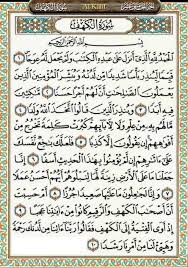 Al Kahf
سُورَةُ الكَهْفِ
بِسْمِ اللَّهِ الرَّحْمَٰنِ الرَّحِيمِ
الْحَمْدُ لِلَّهِ الَّذِي أَنزَلَ عَلَىٰ عَبْدِهِ الْكِتَٰبَ وَلَمْ يَجْعَل لَّهُ عِوَجَا ۝١
قَيِّمًا لِّيُنذِرَ بَأْسًا شَدِيدًا مِّن لَّدُنْهُ وَيُبَشِّرَ الْمُؤْمِنِينَ الَّذِينَ
يَعْمَلُونَ الصَّٰلِحَٰتِ أَنَّ لَهُمْ أَجْرًا حَسَنًا ۝٢ مَّٰكِثِينَ
فِيهِ أَبَدًا ۝٣ وَيُنذِرَ الَّذِينَ قَالُوا اتَّخَذَ اللَّهُ وَلَدًا ۝٤
مَّا لَهُم بِهِ مِنْ عِلْمٍ وَلَا لِآبَائِهِمْ كَبُرَتْ كَلِمَةً تَخْرُجُ مِنْ
أَفْوَٰهِهِمْ إِن يَقُولُونَ إِلَّا كَذِبًا ۝٥ فَلَعَلَّكَ بَٰخِعٌ نَّفْسَكَ
عَلَىٰ آثَٰرِهِمْ إِن لَّمْ يُؤْمِنُوا بِهَٰذَا الْحَدِيثِ أَسَفًا ۝٦
إِنَّا جَعَلْنَا مَا عَلَى الْأَرْضِ زِينَةً لَّهَا لِنَبْلُوَهُمْ أَيُّهُمْ أَحْسَنُ عَمَلًا ۝٧
وَإِنَّا لَجَٰعِلُونَ مَا عَلَيْهَا صَعِيدًا جُرُزًا ۝٨ أَمْ حَسِبْتَ
أَنَّ أَصْحَٰبَ الْكَهْفِ وَالرَّقِيمِ كَانُوا مِنْ آيَٰتِنَا عَجَبًا ۝٩
إِذْ أَوَى الْفِتْيَةُ إِلَى الْكَهْفِ فَقَالُوا رَبَّنَا آتِنَا مِن لَّدُنكَ رَحْمَةً
وَهَيِّئْ لَنَا مِنْ أَمْرِنَا رَشَدًا ۝١٠